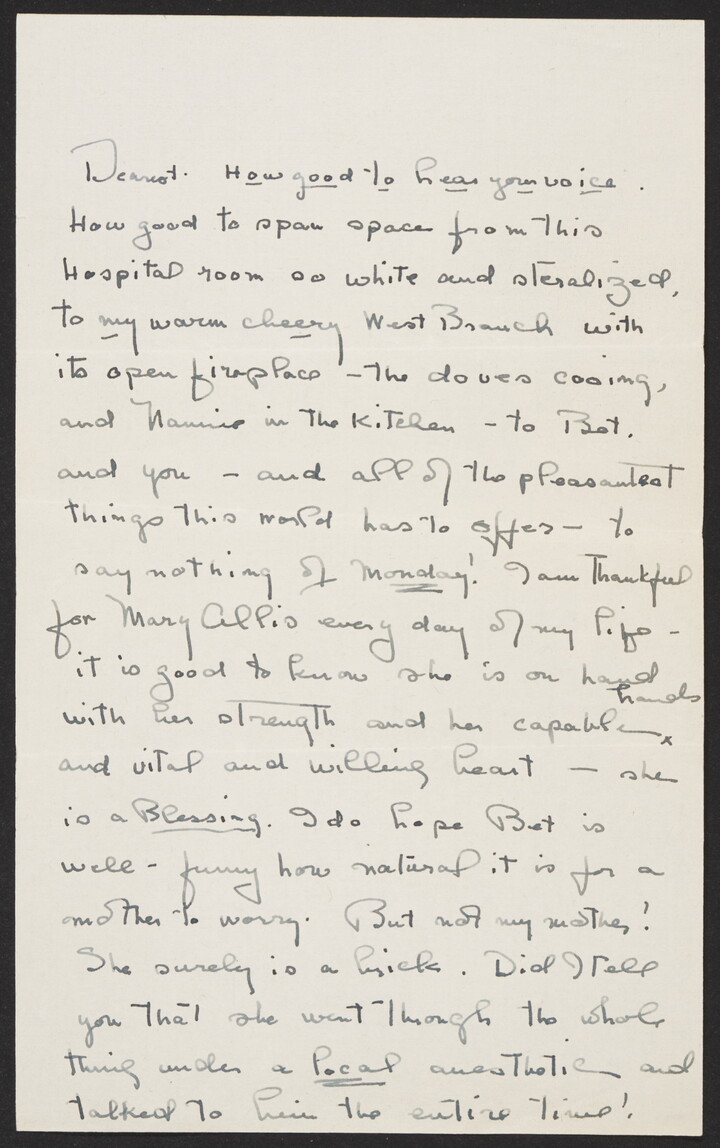 Dearest. How good to hear your voice.
How good to span space from this
Hospital room so white and steralized,
to my warm cheery West Branch with
its open fireplace - the doves cooing,
and Nannie in the Kitchen - to Bet.
and you - and all of the pleasantest
things this world has to offer - to
say nothing of Monday! I am Thankful
for Mary Allis every day of my life -
it is good to know she is on hand
with her strength and her capable x hands
and vital and willing heart - she
is a Blessing. I do hope Bet is
well - funny how natural it is for a
mother to worry. But not my mother!
She surely is a brick. Did I tell
you that she went through the whole
thing under a local anesthetic and
talked to him the entire time!